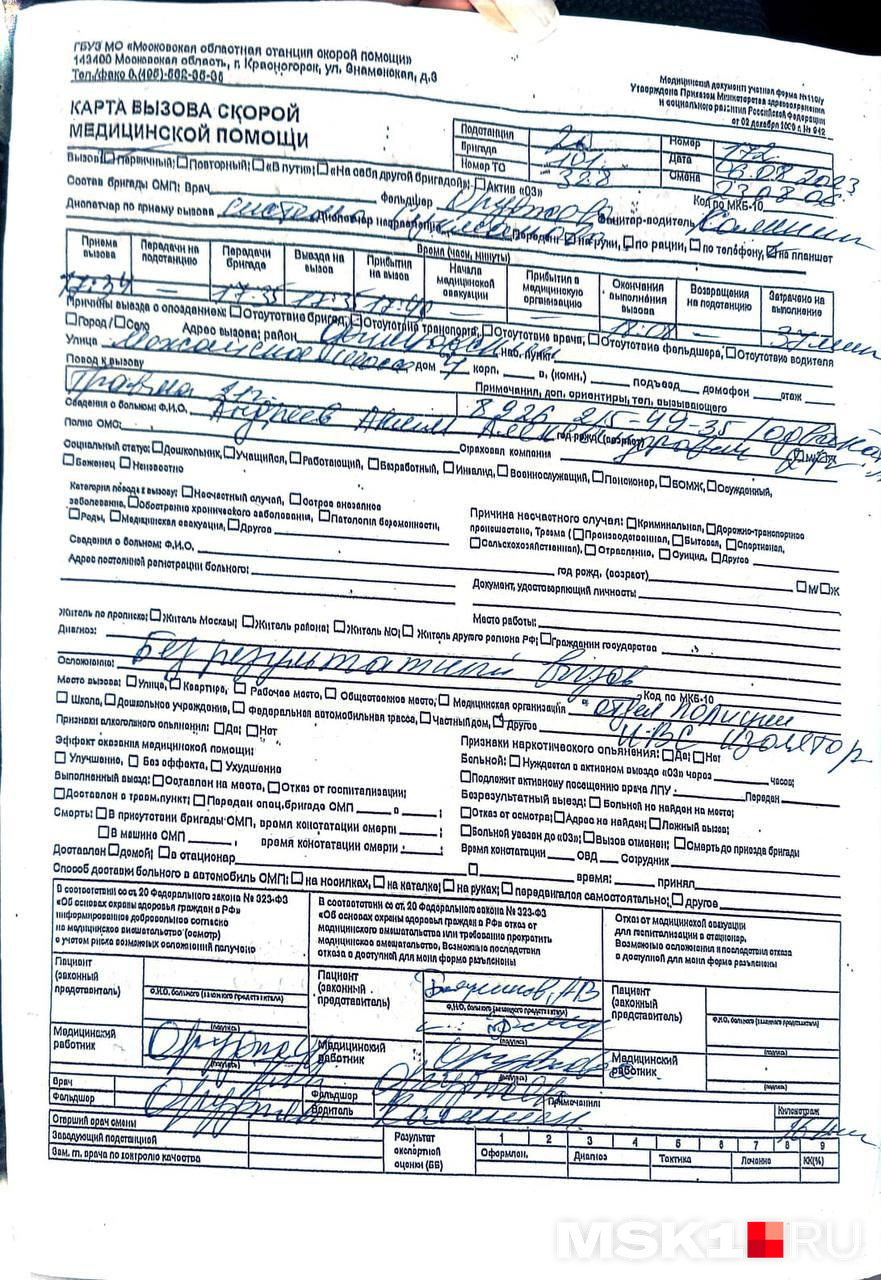 ГБУЗ МО «Московская областная станция скорой помощи»
143400 Московская область, г. Красногорск, ул. Знаменская, д.3
Медицинский документ учетная форма №110/у
Утверждена Приказом Министерства здравоохранения
и социального развития Российской Федерации
от 02 декабря 2009 г. № 942
КАРТА ВЫЗОВА СКОРОЙ
МЕДИЦИНСКОЙ ПОМОЩИ
Подстанция Номер 172
Бригада 101 Дата 06.08.2023
Номер ТО 328 Смена 23.08.06
Вызов: Первичный; Повторный; «В пути»; «На себя другой бригадой»; Актив «03» Код по МКБ-10
Состав бригады СМП: Врач Фельдшер Санитар-водитель
Диспетчер по приему вызова система Диспетчер направления Передан: на руки, по рации, по телефону, на планшет
Время (часы, минуты)
Приема вызова Передачи на подстанцию Передачи бригаде Выезда на вызов Прибытия на вызов Начала медицинской эвакуации Прибытия в медицинскую организацию Окончания выполнения вызова Возвращения на подстанцию Затрачено на выполнение
17:34 — 17:35 17:35 17:40 — — 18:08 —
Причины выезда с опозданием: Отсутствие бригад, Отсутствие транспорта, Отсутствие врача, Отсутствие фельдшера, Отсутствие водителя
Город / Село Адрес вызова: район нас. пункт
Улица Можайское шоссе дом 4 корп. в, (комн.) подъезд домофон этаж
Повод к вызову Примечания, доп. ориентиры, тел. вызывающего
Травма 8 926 215-49-35
Сведения о больном: Ф.И.О. Андреев год рожд. (возраст) М/Ж
Полис ОМС: Страховая компания
Социальный статус: Дошкольник, Учащийся, Работающий, Безработный, Инвалид, Военнослужащий, Пенсионер, БОМЖ, Осужденный,
Беженец Неизвестно
Категория повода к вызову: Несчастный случай, Острое внезапное
заболевание, Обострение хронического заболевания, Патология беременности,
Роды, Медицинская эвакуация, Другое
Причина несчастного случая: Криминальная, Дорожно-транспортное
происшествие, Травма ( Производственная, Бытовая, Спортивная,
Сельскохозяйственная), Отравление, Суицид, Другое
Сведения о больном: Ф.И.О. год рожд. (возраст) М/ Ж
Адрес постоянной регистрации больного: Документ, удостоверяющий личность
Место работы:
Житель по прописке: Житель Москвы; Житель района; Житель МО; Житель другого региона РФ; Гражданин государства
Диагноз: Безрезультатный вызов
Осложнение: Код по МКБ-10
Место вызова: Улица, Квартира, Рабочее место, Общественное место, Медицинская организация отдел полиции
Школа, Дошкольное учреждение, Федеральная автомобильная трасса, Частный дом, Другое ИВС изолятор
Признаки алкогольного опьянения: Да; Нет Признаки наркотического опьянения: Да; Нет
Эффект оказания медицинской помощи:
Улучшение, Без эффекта, Ухудшение
Выполненный выезд: Оставлен на месте, Отказ от госпитализации;
Доставлен в травм.пункт; Передан спец.бригаде СМП в ;
Смерть: В присутствии бригады СМП, время констатации смерти ;
В машине СМП , время констатации смерти ;
Доставлен домой; в стационар
Больной: Нуждается в активном выезде «03» через часов;
Подлежит активному посещению врача ЛПУ Передан
Безрезультатный выезд: Больной не найден на месте;
Отказ от осмотра; Адрес не найден; Ложный вызов;
Больной увезен до «03»; Вызов отменен; Смерть до приезда бригады
Время констатации ОВД Сотрудник
время: принял
Способ доставки больного в автомобиль СМП: на носилках, на каталке; на руках; передвигался самостоятельно; другое
В соответствии со ст. 20 Федерального закона № 323-ФЗ
«Об основах охраны здоровья граждан в РФ»
информированное добровольное согласие
на медицинское вмешательство (осмотр)
с учетом риска возможных осложнений получено
В соответствии со ст. 20 Федерального закона № 323-ФЗ
«Об основах охраны здоровья граждан в РФ» отказ от
медицинского вмешательства или требование прекратить
медицинское вмешательство. Возможные последствия
отказа в доступной для меня форме разъяснены
Отказ от медицинской эвакуации
для госпитализации в стационар.
Возможные осложнения и последствия отказа
в доступной для меня форме разъяснены
Пациент (законный представитель) Пациент (законный представитель) Пациент (законный представитель)
Ф.И.О. больного (законного представителя) Ф.И.О. больного (законного представителя) Ф.И.О. больного (законного представителя)
(подпись) (подпись) (подпись)
Медицинский работник Медицинский работник Медицинский работник
(подпись) (подпись) (подпись)
Врач Фельдшер Примечания:
Фельдшер Водитель Километраж
Старший врач смены
Заведующий подстанцией
Зам. гл. врача по контролю качества
Результат экспертной оценки (ББ)
1 2 3 4 5 6 7 8 9
Оформлен. Диагноз Тактика Лечение КК(%)
MSK1.RU